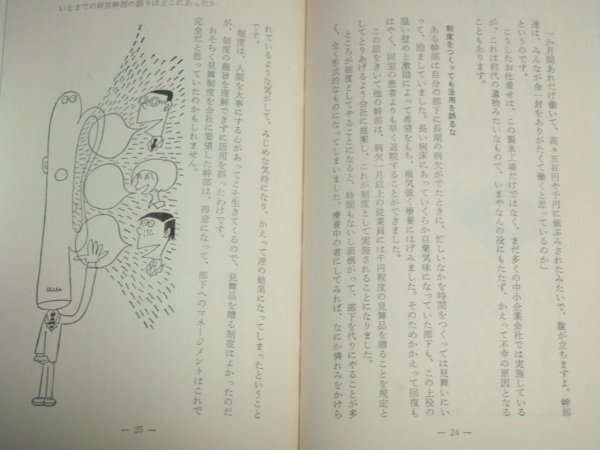 一か月間あれだけ働いて、高々五百円や千円に値ぶみされたみたいで、腹が立ちますよ。幹部
連は、みんなが金一封をありがたくて働くと思っているのか」
というのです。
こうしたお仕着せは、この製氷工場だけではなく、まだ多くの中小企業会社では実施している
が、これは前代の遺物みたいなもので、いまやなんの役にもたたず、かえって不幸の原因となる
こともあります。
制度をつくっても活用を誤るな
ある幹部は自分の部下に長期の病欠がでたときに、忙しいなかを時間をつくっては見舞いにい
って、励ましていました。長い病床にあっていくらか自棄気味になっていた部下も、この上役の
温い慰めと激励によって希望をもち、根気強く療養にはげみました。そのためかかえって回復も
はやく、同室の患者よりも早く退院することができました。
この話をきいて他の幹部は、病欠一月以上の従業員には千円程度の見舞品を贈ることを規定と
してとりあげるよう会社に提案し、これが制度として実施されることになりました。
ところが制度としてやることになると、時間もないし面倒がって、部下を代りにやることが多
く、全く形式的なものになっていってしまいました。療養中の者にしてみれば、なにか憐れみをかけら
— 24 —
いままでの経営幹部の誤りはどこにあったか
れているような気がして、みじめな気持になり、かえって逆の結果になってしまったということ
です。
制度は、人間を大事にする心があってこそ生きてくるので、見舞品を贈る制度はよかったのだ
が、制度の趣旨を理解できずに活用を誤ったわけです。
おそらく見舞制度を会社に要望した幹部は、得意になって、部下へのマネージメントはこれで
完全だと思っていたのかもしれません。
— 25 —